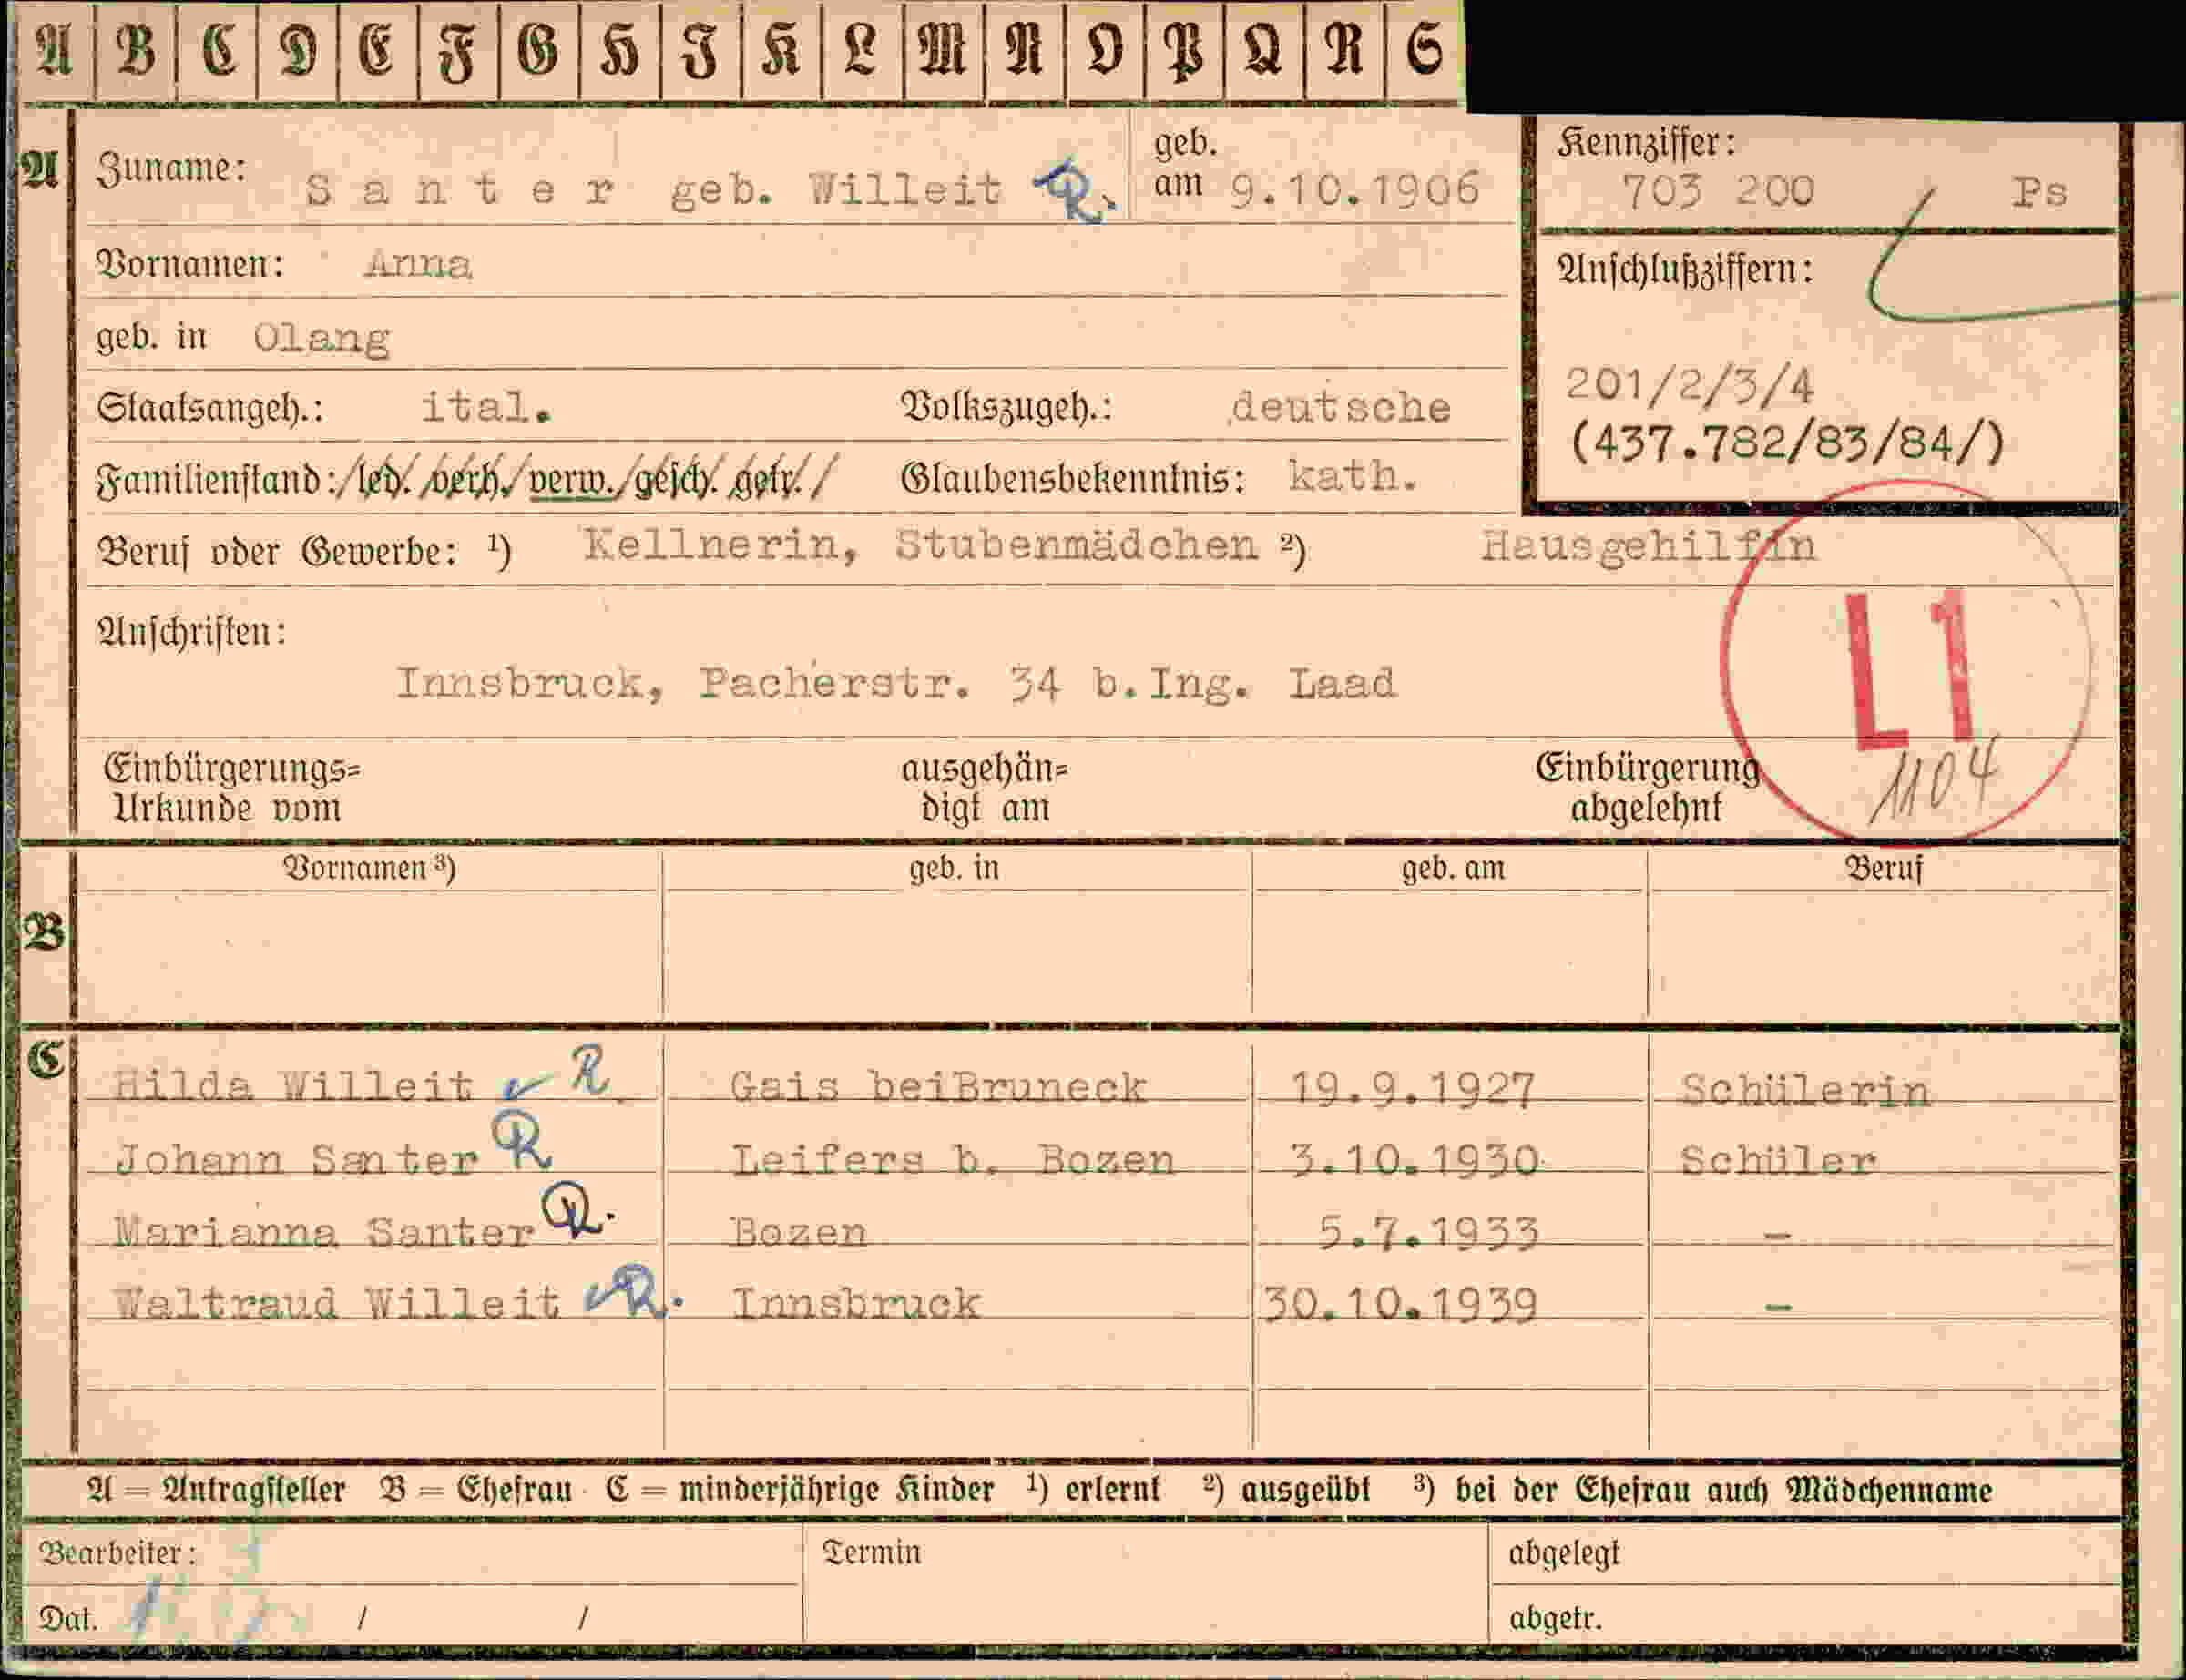 A B C D E F G H I K L M N O P Q R S
A Zuname: Santer geb. Willeit R. geb. am 9.10.1906
Kennziffer: 703 200 Ps
Vornamen: Anna
geb. in Olang
Anschlußziffern:
201/2/3/4
(437.782/83/84/)
Staatsangeh.: ital. Volkszugeh.: deutsche
Familienstand: /led. /verh. /verw. /gesch. getr. / Glaubensbekenntnis: kath.
Beruf oder Gewerbe: ¹) Kellnerin, Stubenmädchen ²) Hausgehilfin
Anschriften:
Innsbruck, Pacherstr. 34 b.Ing. Laad
L1
1104
Einbürgerungs=
Urkunde vom
ausgehän=
digt am
Einbürgerung
abgelehnt
Vornamen ³) geb. in geb. am Beruf
B
C
Hilda Willeit R Gais beiBruneck 19.9.1927 Schülerin
Johann Santer R Leifers b. Bozen 3.10.1930 Schüler
Marianna Santer R. Bozen 5.7.1933 –
Waltraud Willeit R. Innsbruck 30.10.1939 –
A = Antragsteller B = Ehefrau C = minderjährige Kinder ¹) erlernt ²) ausgeübt ³) bei der Ehefrau auch Mädchenname
Bearbeiter: Termin abgelegt
Dat. / / abgetr.